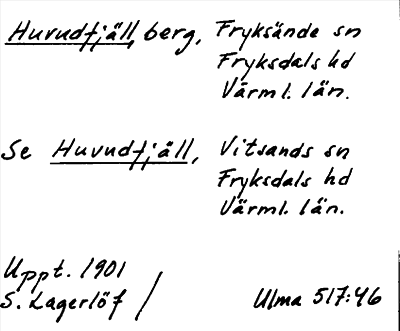 Huvudfjäll, berg, Fryksände sn
Fryksdals hd
Värml. län.
Se Huvudfjäll, Vitsands sn
Fryksdals hd
Värml. län.
Uppt. 1901
S. Lagerlöf / Ulma 517:46